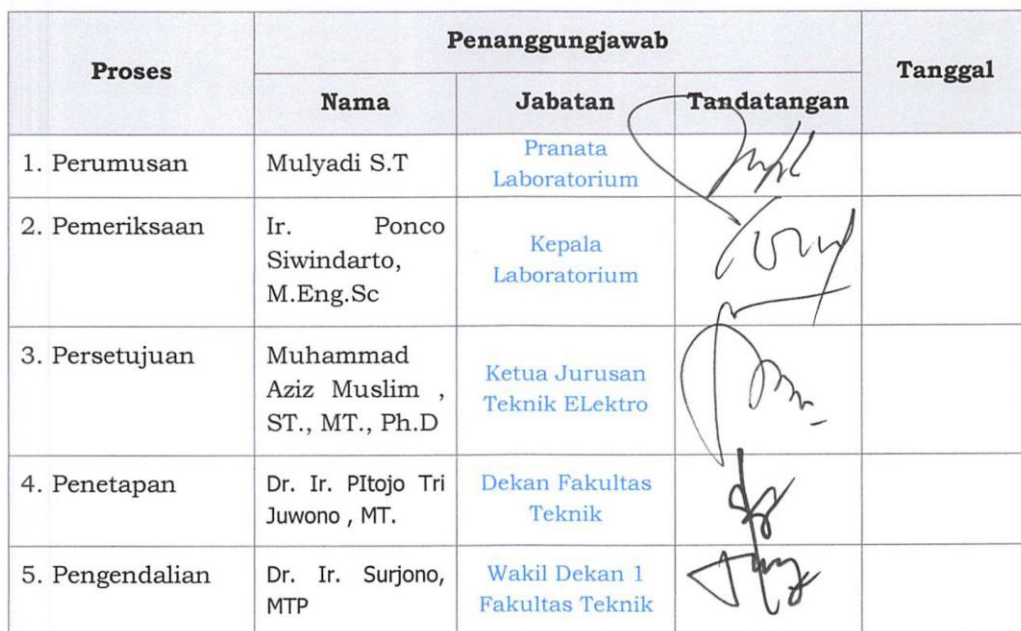 Proses
Penanggungjawab
Tanggal
Nama
Jabatan
Tandatangan
1. Perumusan
Mulyadi S.T
Pranata
Laboratorium
2. Pemeriksaan
Ir. Ponco
Siwindarto,
M.Eng.Sc
Kepala
Laboratorium
3. Persetujuan
Muhammad
Aziz Muslim ,
ST., MT., Ph.D
Ketua Jurusan
Teknik ELektro
4. Penetapan
Dr. Ir. PItojo Tri
Juwono , MT.
Dekan Fakultas
Teknik
5. Pengendalian
Dr. Ir. Surjono,
MTP
Wakil Dekan 1
Fakultas Teknik